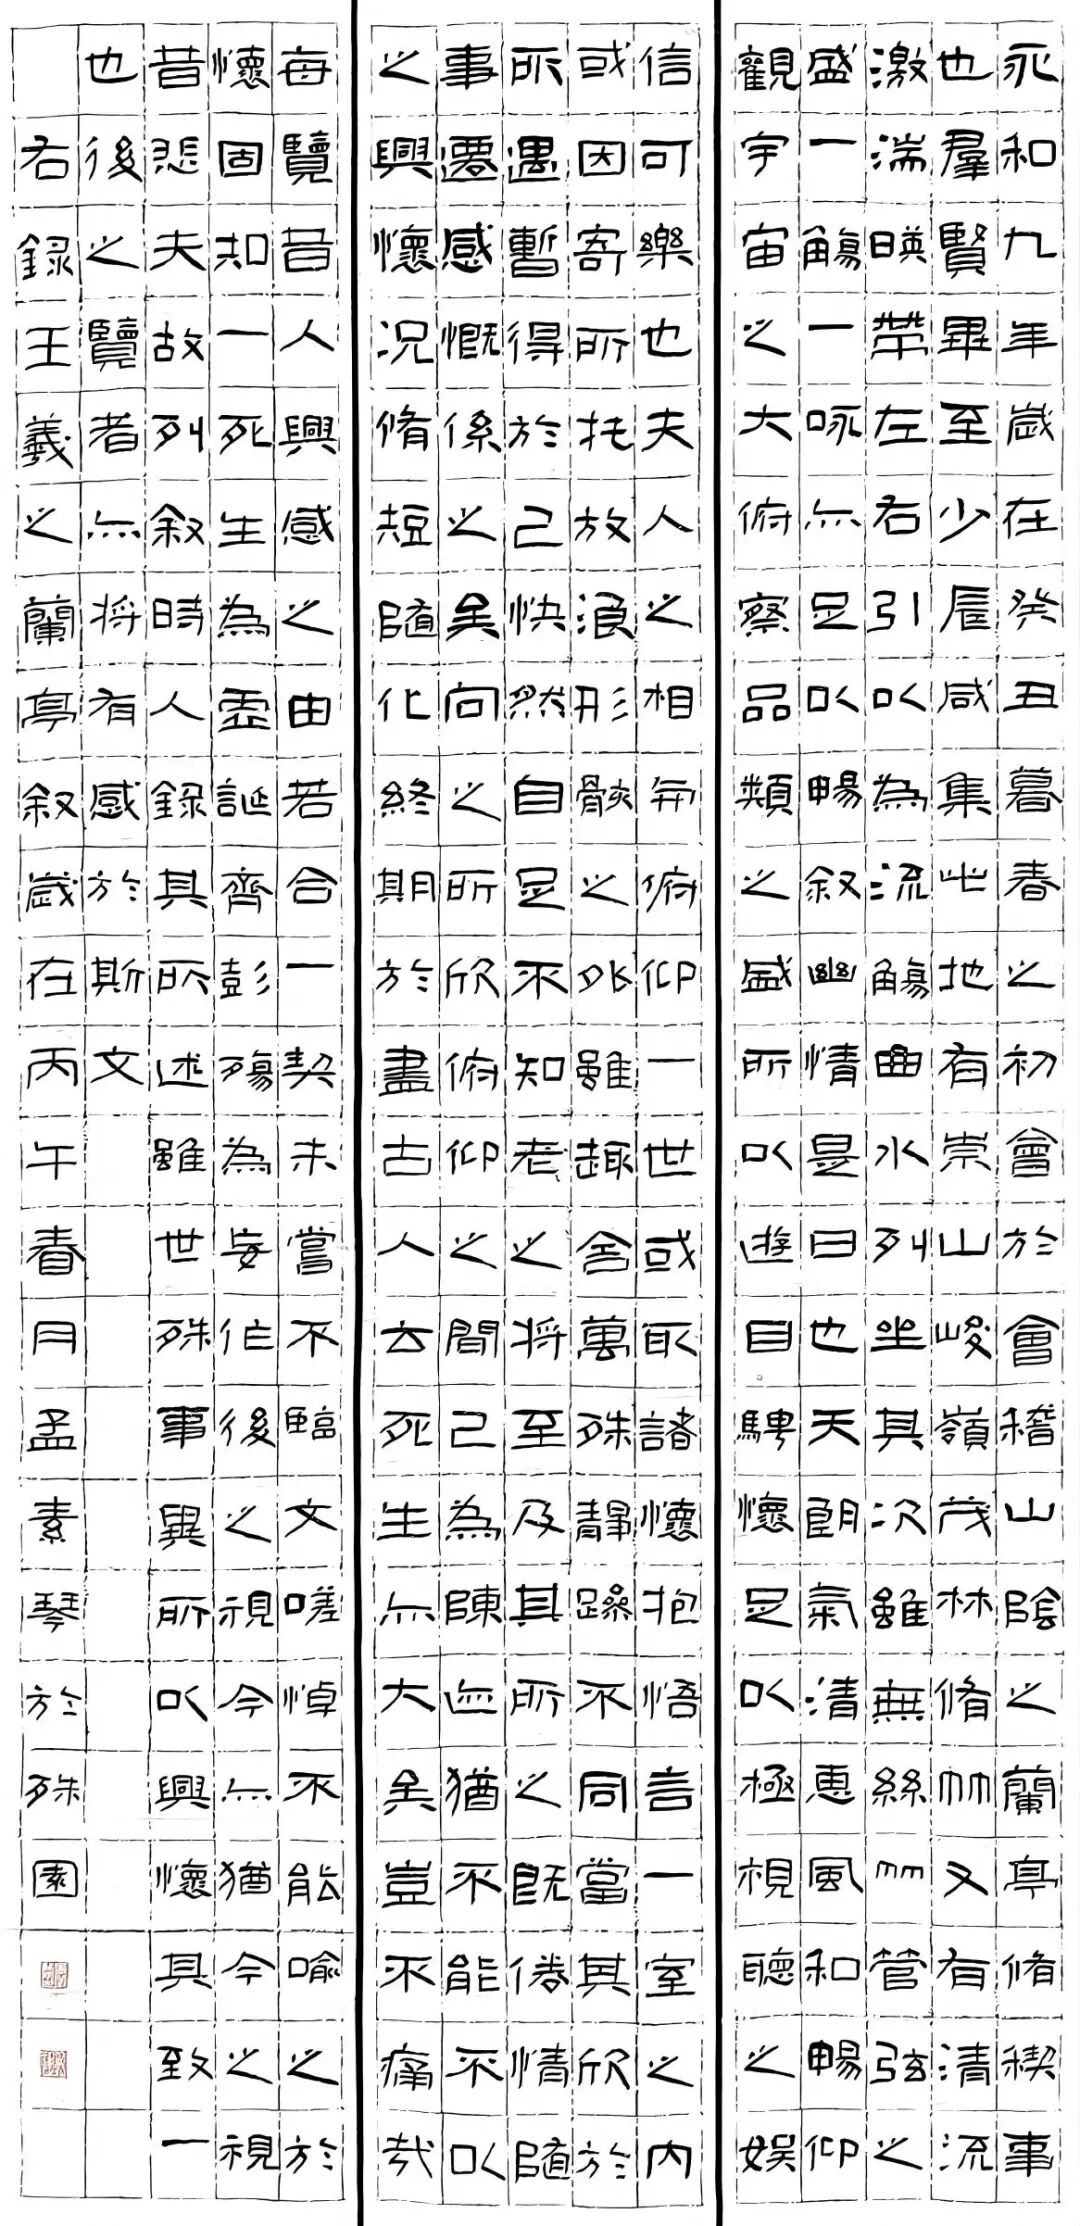 永和九年歲在癸丑暮春之初會於會稽山陰之蘭亭脩稧事
也羣賢畢至少長咸集此地有崇山峻嶺茂林脩竹又有清流
激湍暎帶左右引以為流觴曲水列坐其次雖無絲竹管弦之
盛一觴一咏亦足以暢叙幽情是日也天朗氣清惠風和暢仰
觀宇宙之大俯察品類之盛所以遊目騁懷足以極視聽之娛
信可樂也夫人之相與俯仰一世或取諸懷抱悟言一室之內
或因寄所托放浪形骸之外雖趣舍萬殊靜躁不同當其欣於
所遇暫得於己快然自足不知老之將至及其所之既倦情隨
事遷感慨係之矣向之所欣俯仰之間已為陳迹猶不能不以
之興懷况脩短隨化終期於盡古人云死生亦大矣豈不痛哉
每覽昔人興感之由若合一契未嘗不臨文嗟悼不能喻之於
懷固知一死生為虛誕齊彭殤為妄作後之視今亦猶今之視
昔悲夫故列叙時人錄其所述雖世殊事異所以興懷其致一
也後之覽者亦將有感於斯文
右錄王羲之蘭亭叙歲在丙午春月孟素琴於殊園